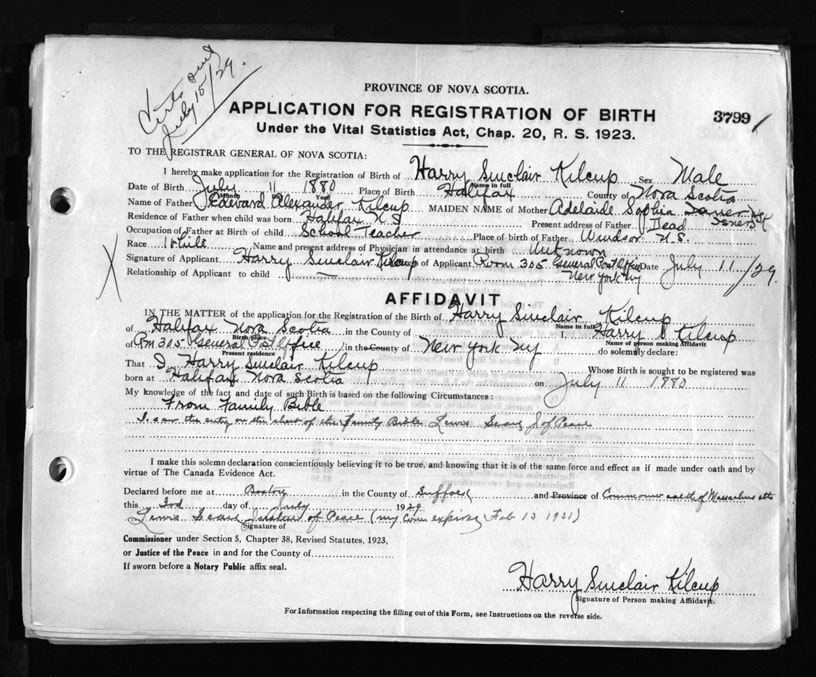 Certs sent
July 15/29.
PROVINCE OF NOVA SCOTIA.
APPLICATION FOR REGISTRATION OF BIRTH
3799
Under the Vital Statistics Act, Chap. 20, R. S. 1923.
TO THE REGISTRAR GENERAL OF NOVA SCOTIA:
I hereby make application for the Registration of Birth of Harry Sinclair Kilcup Sex Male
Name in full
Date of Birth July 11 1880 Place of Birth Halifax County of Nova Scotia
Name of Father Edward Alexander Kilcup MAIDEN NAME of Mother Adelaide Sophia
Residence of Father when child was born Halifax N.S. Present address of Father Dead
Occupation of Father at Birth of child School Teacher Place of birth of Father Windsor N.S.
Race White Name and present address of Physician in attendance at birth Unknown
Signature of Applicant Harry Sinclair Kilcup of Applicant Room 305 General Post Office Date July 11/29.
New York Ny
Relationship of Applicant to child —
AFFIDAVIT
IN THE MATTER of the application of the Birth of Harry Sinclair Kilcup
Name in full
of Halifax Nova Scotia in the County of I, Harry S Kilcup
Birth place
Name of person making Affidavit
of Rm 305 General Post Office in the County of New York Ny do solemnly declare:
Present residence
That I, Harry Sinclair Kilcup Whose Birth is sought to be registered was
born at Halifax Nova Scotia on July 11 1880
My knowledge of the fact and date of such Birth is based on the following Circumstances:
From Family Bible
I saw the entry on the sheet of the Family Bible Lewis J of Peace
I make this solemn declaration conscientiously believing it to be true, and knowing that it is of the same force and effect as if made under oath and by
virtue of The Canada Evidence Act.
Declared before me at Boston in the County of Suffolk and Province of Commonwealth of Massachusetts
this 3rd day of July 1929
Lewis Justice of Peace (my Com expires Feb 13 1931)
Signature of
Commissioner under Section 5, Chapter 38, Revised Statutes, 1923,
or Justice of the Peace in and for the County of
If sworn before a Notary Public affix seal.
Harry Sinclair Kilcup
Signature of Person making Affidavit.
For Information respecting the filling out of this Form, see Instructions on the reverse side.